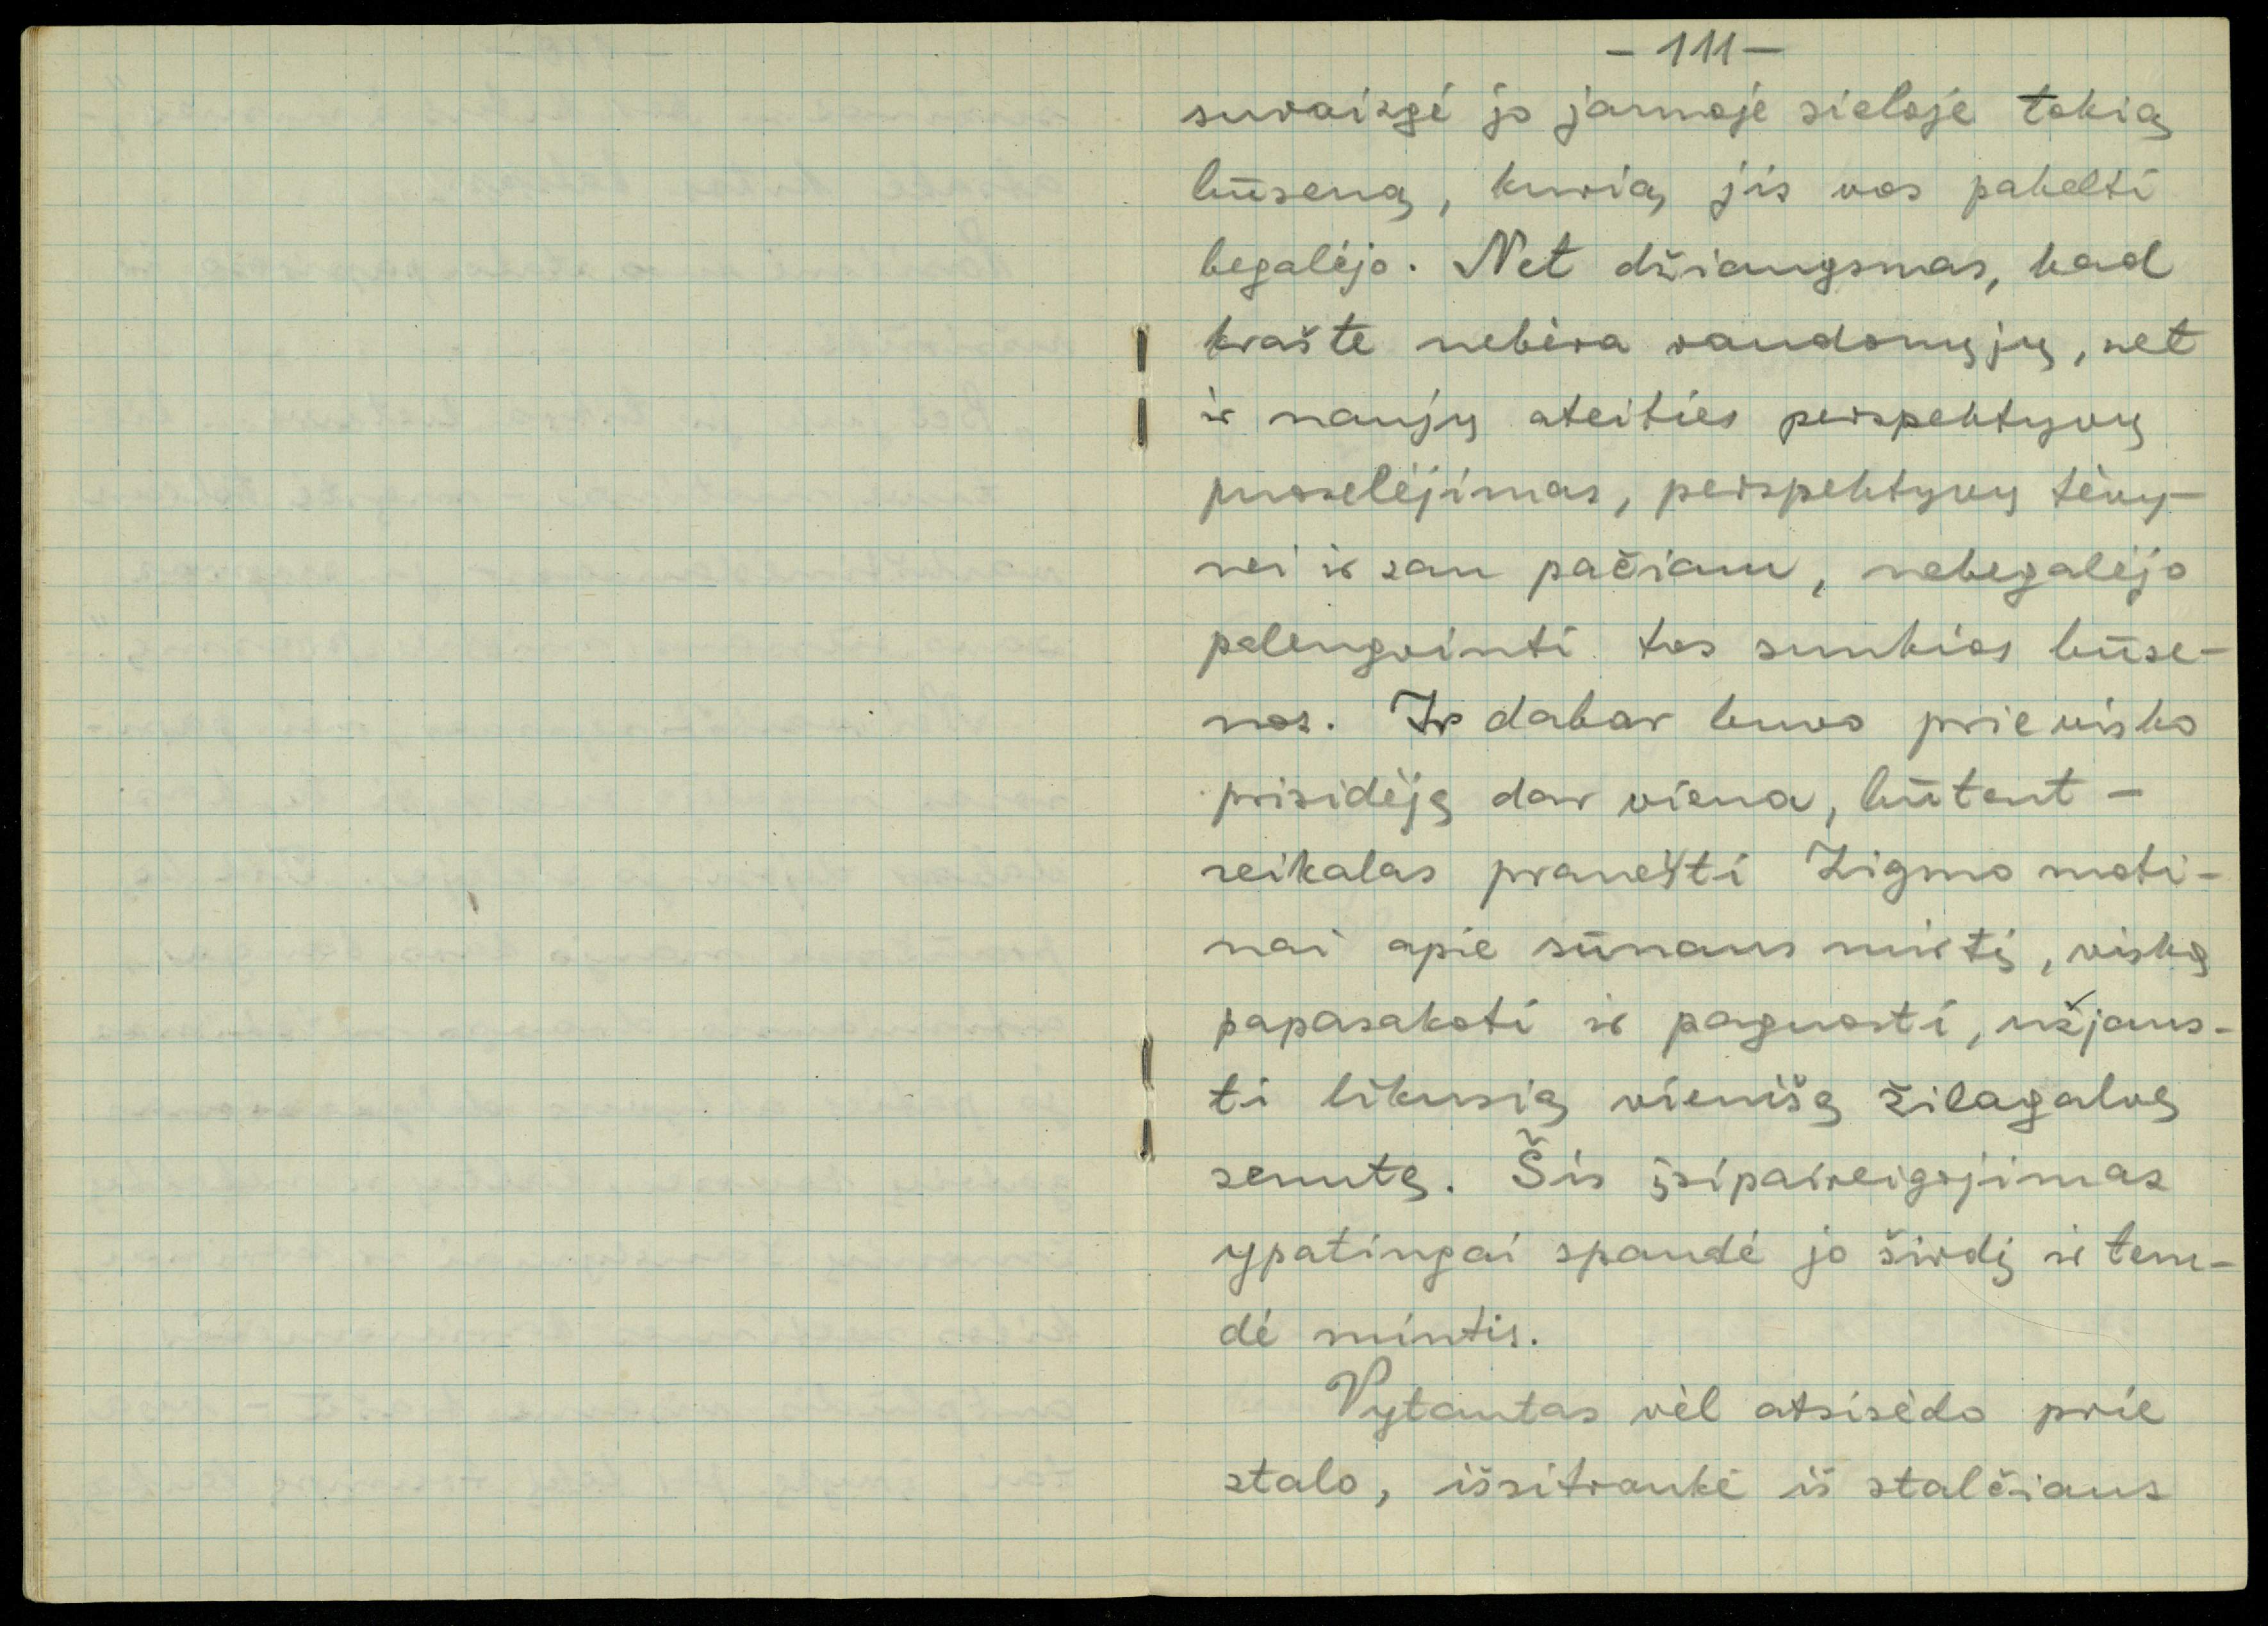 - 111 -
suraizgė jo jaunoje sieloje tokią
būseną, kurią jis vos pakelti
begalėjo. Net džiaugsmas, kad
krašte nebėra raudonųjų, net
ir naujų ateities perspektyvų
puoselėjimas, perspektyvų tėvy-
nei ir sau pačiam, nebegalėjo
palengvinti tos sunkios būse-
nos. Ir dabar buvo prie visko
prisidėję dar viena, būtent -
reikalas pranešti Zigmo moti-
nai apie sūnaus mirtį, viską
papasakoti ir paguosti, užjaus-
ti likusią vienišą žilagalvę
senutę. Šis įsipareigojimas
ypatingai spaudė jo širdį ir tem-
dė mintis.
Vytautas vėl atsisėdo prie
stalo, išsitraukė iš stalčiaus